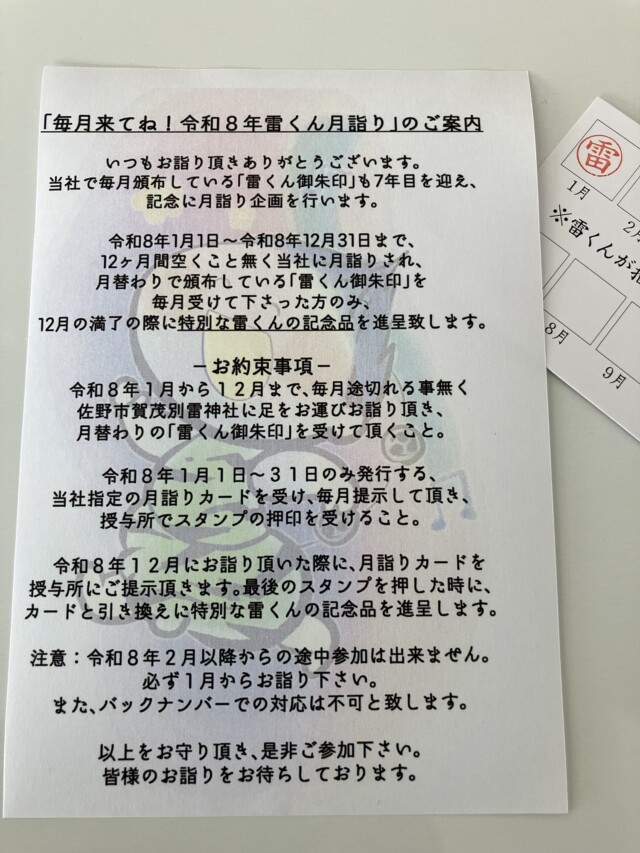 「毎月来てね！令和８年雷くん月詣り」のご案内
いつもお詣り頂きありがとうございます。
当社で毎月頒布している「雷くん御朱印」も7年目を迎え、
記念に月詣り企画を行います。
令和8年1月1日～令和8年12月31日まで、
12ヶ月間空くこと無く当社に月詣りされ、
月替わりで頒布している「雷くん御朱印」を
毎月受けて下さった方のみ、
12月の満了の際に特別な雷くんの記念品を進呈致します。
－お約束事項－
令和８年１月から１２月まで、毎月途切れる事無く
佐野市賀茂別雷神社に足をお運びお詣り頂き、
月替わりの「雷くん御朱印」を受けて頂くこと。
令和８年１月１日～３１日のみ発行する、
当社指定の月詣りカードを受け、毎月提示して頂き、
授与所でスタンプの押印を受けること。
令和８年１２月にお詣り頂いた際に、月詣りカードを
授与所にご提示頂きます。最後のスタンプを押した時に、
カードと引き換えに特別な雷くんの記念品を進呈します。
注意：令和８年２月以降からの途中参加は出来ません。
必ず１月からお詣り下さい。
また、バックナンバーでの対応は不可と致します。
以上をお守り頂き、是非ご参加下さい。
皆様のお詣りをお待ちしております。
雷
1月
2月
※雷くんが
8月
9月